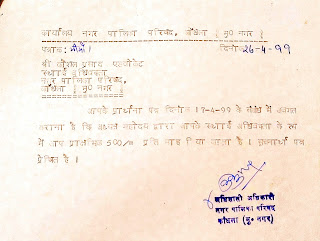 कार्यालय नगर पालिका परिषद, काँधला ( मु० नगर )
पत्रांक: मीमो । दिनांक 26-4-99
श्री कौशल प्रसाद एडवोकेट
स्थायी अधिवक्ता
नगर पालिका परिषद,
काँधला ( मु० नगर )
आपके प्रार्थना पत्र दिनांक 17-4-99 के संबंध में अवगत
कराना है कि अध्यक्ष महोदय द्वारा आपके स्थायी अधिवक्ता के रूप
में आप पारिश्रमिक 500/= प्रति माह किया जाता है । सूचनार्थ पत्र
प्रेषित है ।
अधिशासी अधिकारी
नगर पालिका परिषद
काँधला (मु० नगर)